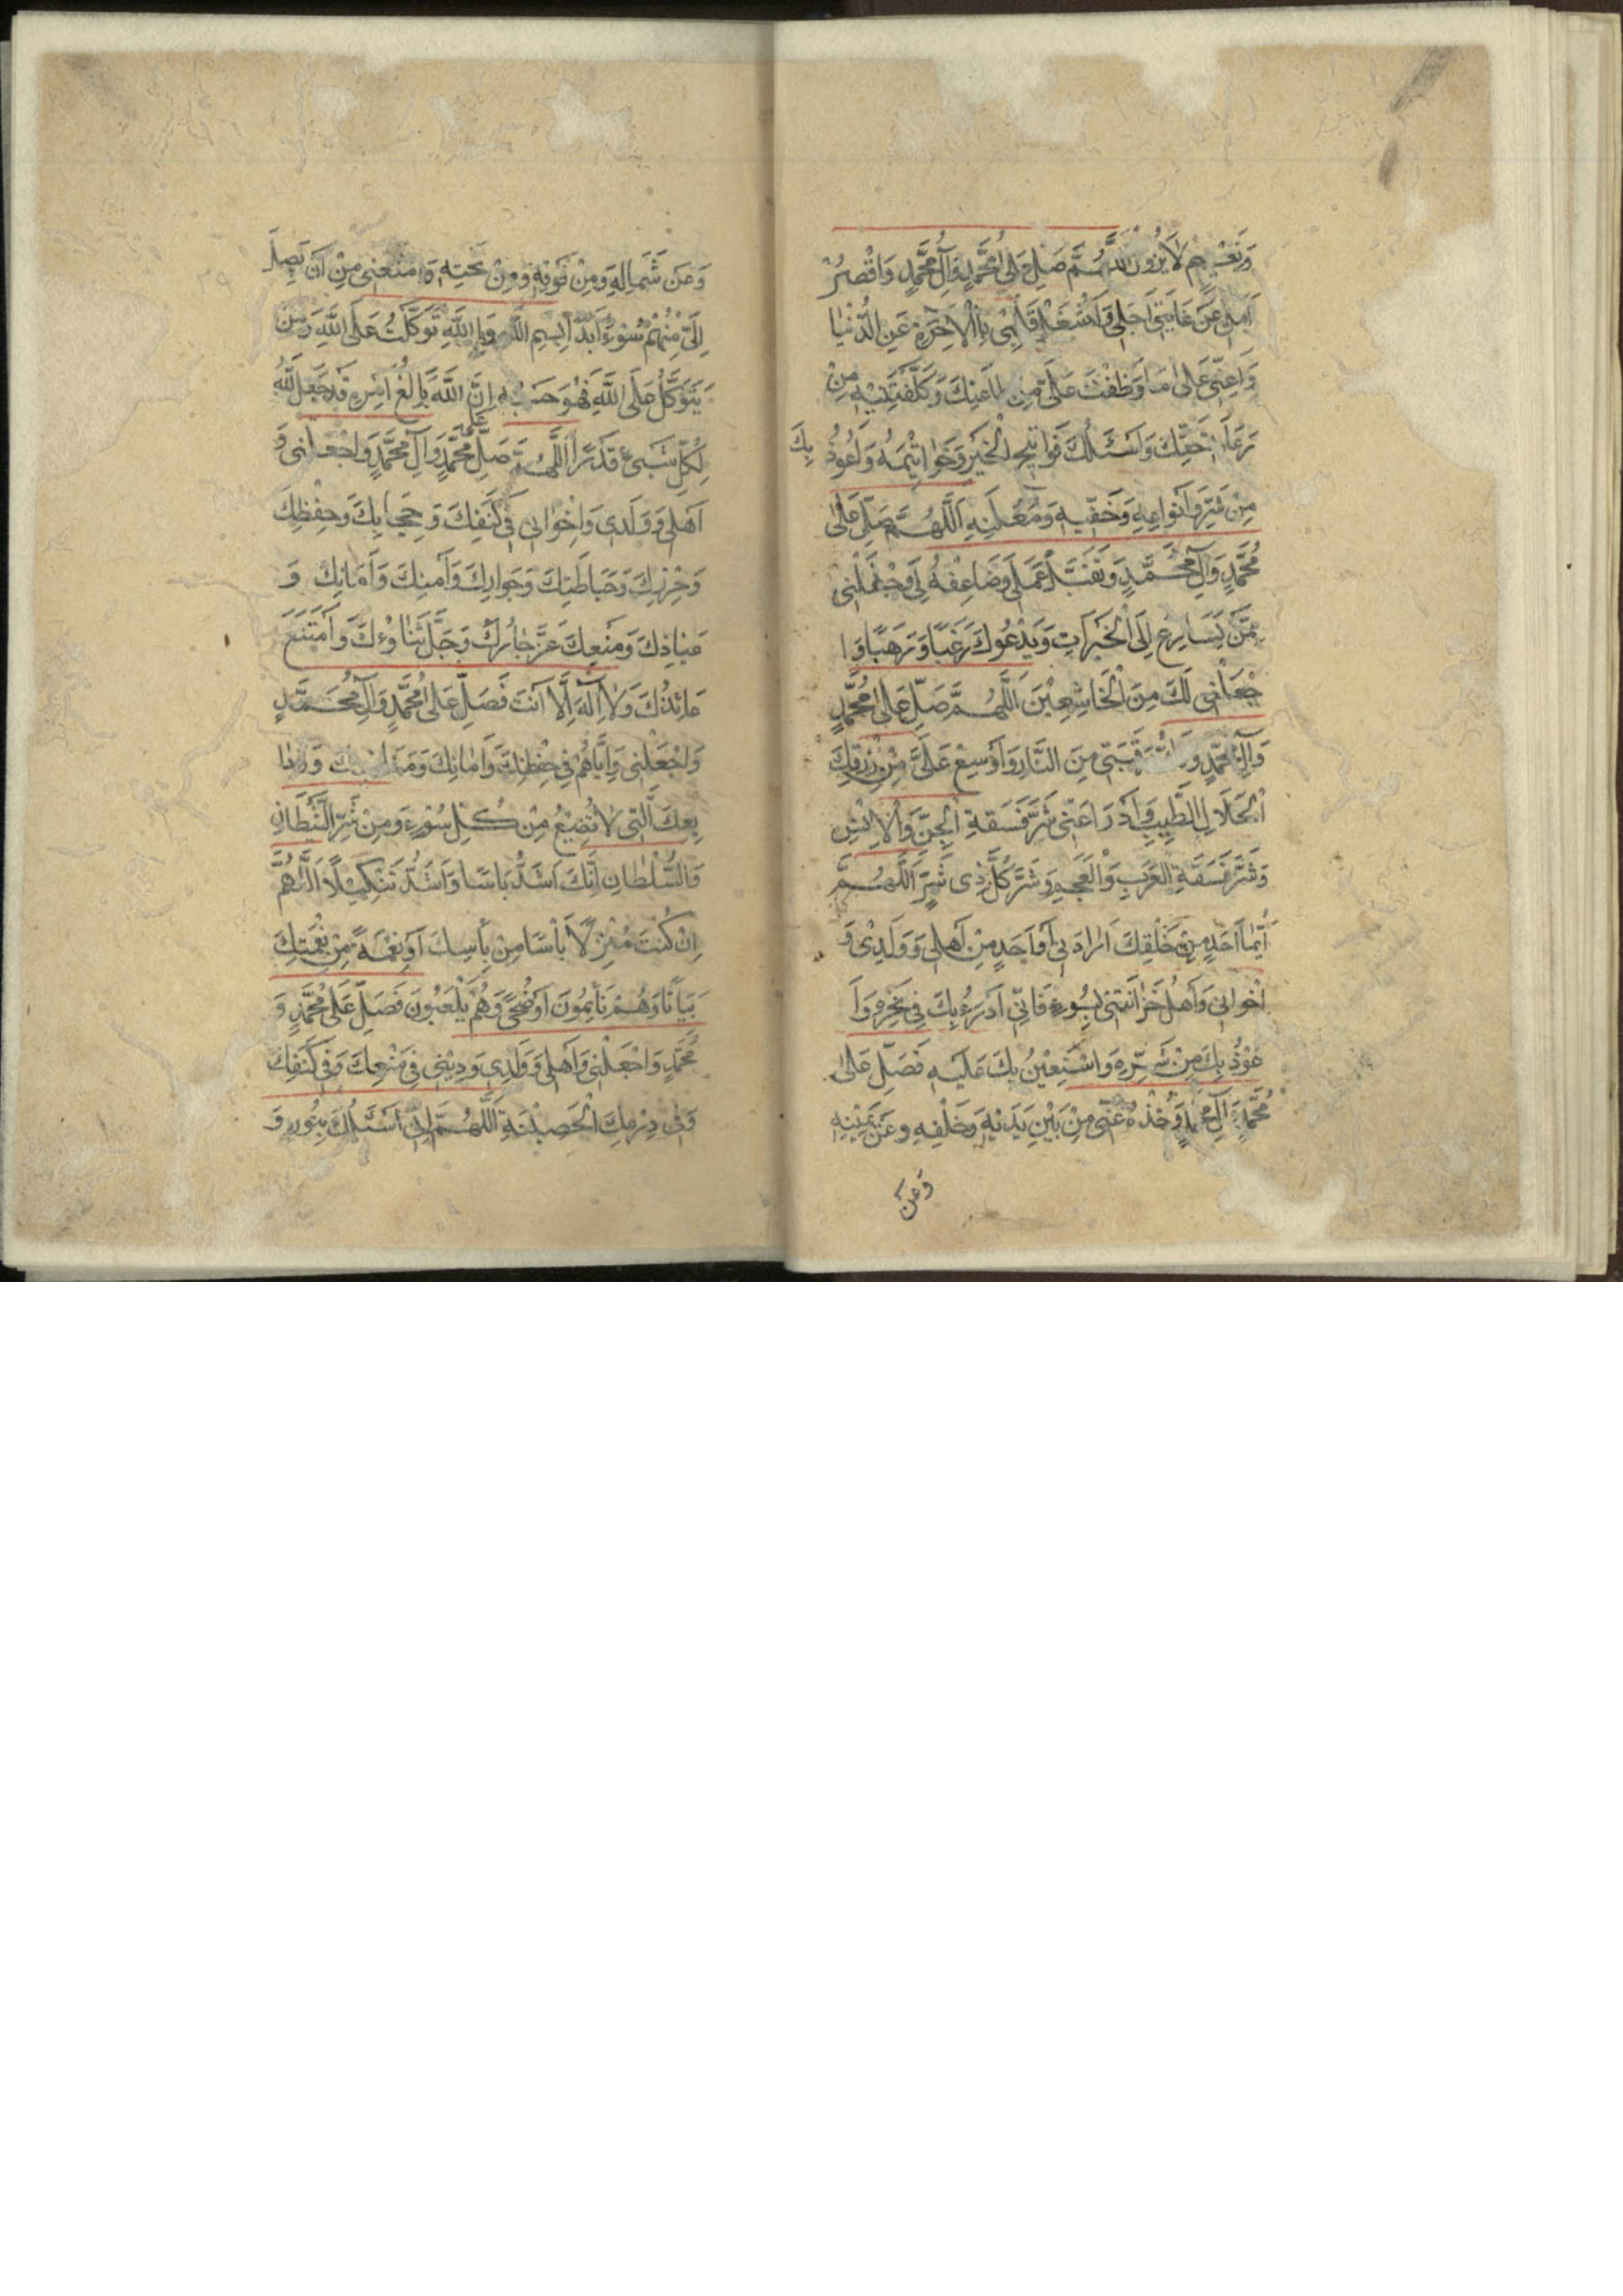 وَنَعِيمٍ لَا يَزُولُ اللَّهُمَّ صَلِّ عَلَىٰ مُحَمَّدٍ وَآلِ مُحَمَّدٍ وَاقْصُرْ
اَمَلِي عَنْ غَايَةِ اَجَلِي وَاشْغَلْ قَلْبِي بِالْآخِرَةِ عَنِ الدُّنْيَا
وَاَعِنِّي عَلىٰ مَا وَظَّفْتَ عَلَيَّ مِنْ طَاعَتِكَ وَكَلَّفْتَنِيهِ مِنْ
رِعَايَةِ حَقِّكَ وَاَسْئَلُكَ فَوَاتِحَ الْخَيْرِ وَخَوَاتِمَهُ وَاَعُوذُ بِكَ
مِنَ الشَّرِّ وَاَنْوَاعِهِ وَخَفِيِّهِ وَمُعْلَنِهِ اَللَّهُمَّ صَلِّ عَلىٰ
مُحَمَّدٍ وَآلِ مُحَمَّدٍ وَتَقَبَّلْ عَمَلِي وَضَاعِفْهُ لِي وَاجْعَلْنِي
مِمَّنْ يُسَارِعُ اِلَى الْخَيْرَاتِ وَيَدْعُوكَ رَغَبًا وَرَهَبًا وَا
جْعَلْنِي لَكَ مِنَ الْخَاشِعِينَ اَللَّهُمَّ صَلِّ عَلىٰ مُحَمَّدٍ
وَآلِ مُحَمَّدٍ وَ رَقَبَتِي مِنَ النَّارِ وَاَوْسِعْ عَلَيَّ مِنْ رِزْقِكَ
الْحَلَالِ الطَّيِّبِ وَادْرَاْ عَنِّي شَرَّ فَسَقَةِ الْجِنِّ وَالْاِنْسِ
وَشَرَّ فَسَقَةِ الْعَرَبِ وَالْعَجَمِ وَشَرَّ كُلِّ ذِي شَرٍّ اَللَّهُمَّ
اَيُّمَا اَحَدٍ مِنْ خَلْقِكَ اَرَادَنِي اَوْ اَحَدٍ مِنْ اَهْلِي وَوَلَدِي وَ
اِخْوَانِي وَاَهْلِ حُزَانَتِي بِسُوءٍ فَاِنِّي اَدْرَءُ بِكَ فِي نَحْرِهِ وَاَ
عُوذُ بِكَ مِنْ شَرِّهِ وَاَسْتَعِينُ بِكَ عَلَيْهِ فَصَلِّ عَلىٰ
مُحَمَّدٍ وَآلِ مُحَمَّدٍ وَخُذْهُ عَنِّي مِنْ بَيْنِ يَدَيْهِ وَخَلْفِهِ وَعَنْ يَمِينِهِ
وَعَنْ
وَعَنْ شِمَالِهِ وَمِنْ فَوْقِهِ وَمِنْ تَحْتِهِ وَامْنَعْنِي مِنْ اَنْ يَصِلَ
اِلَيَّ مِنْهُمْ سُوءٌ اَبَدًا بِسْمِ اللَّهِ وَبِاللَّهِ تَوَكَّلْتُ عَلَى اللَّهِ وَمَنْ
يَتَوَكَّلْ عَلَى اللَّهِ فَهُوَ حَسْبُهُ اِنَّ اللَّهَ بَالِغُ اَمْرِهِ قَدْ جَعَلَ اللَّهُ
لِكُلِّ شَيْءٍ قَدْرًا اَللَّهُمَّ صَلِّ عَلَى مُحَمَّدٍ وَآلِ مُحَمَّدٍ وَاجْعَلْنِي وَ
اَهْلِي وَوَلَدِي وَاِخْوَانِي فِي كَنَفِكَ وَحِجَابِكَ وَحِفْظِكَ
وَحِرْزِكَ وَحِيَاطَتِكَ وَجِوَارِكَ وَاَمْنِكَ وَاَمَانِكَ وَ
عِيَاذِكَ وَمَنْعِكَ عَزَّ جَارُكَ وَجَلَّ ثَنَاؤُكَ وَامْتَنَعَ
عَائِذُكَ وَلَا اِلٰهَ اِلَّا اَنْتَ فَصَلِّ عَلىٰ مُحَمَّدٍ وَآلِ مُحَمَّدٍ
وَاجْعَلْنِي وَاِيَّاهُمْ فِي حِفْظِكَ وَاَمَانِكَ وَ وَوَدَا
يِعِكَ الَّتِي لَا تَضِيعُ مِنْ كُلِّ سُوءٍ وَمِنْ شَرِّ الشَّيْطَانِ
وَالسُّلْطَانِ اِنَّكَ اَشَدُّ بَاْسًا وَاَشَدُّ تَنْكِيلًا اَللَّهُمَّ
اِنْ كُنْتَ مُنْزِلًا بَاْسًا مِنْ بَاْسِكَ اَوْ نِقْمَةً مِنْ نِقْمَتِكَ
بَيَاتًا وَهُمْ نَائِمُونَ اَوْ ضُحًى وَهُمْ يَلْعَبُونَ فَصَلِّ عَلىٰ مُحَمَّدٍ وَ
مُحَمَّدٍ وَاجْعَلْنِي وَاَهْلِي وَوَلَدِي وَدِينِي فِي مَنْعِكَ وَفِي كَنَفِكَ
وَفِي دِرْعِكَ الْحَصِينَةِ اَللَّهُمَّ اِنِّي اَسْئَلُكَ بِنُورِ وَ